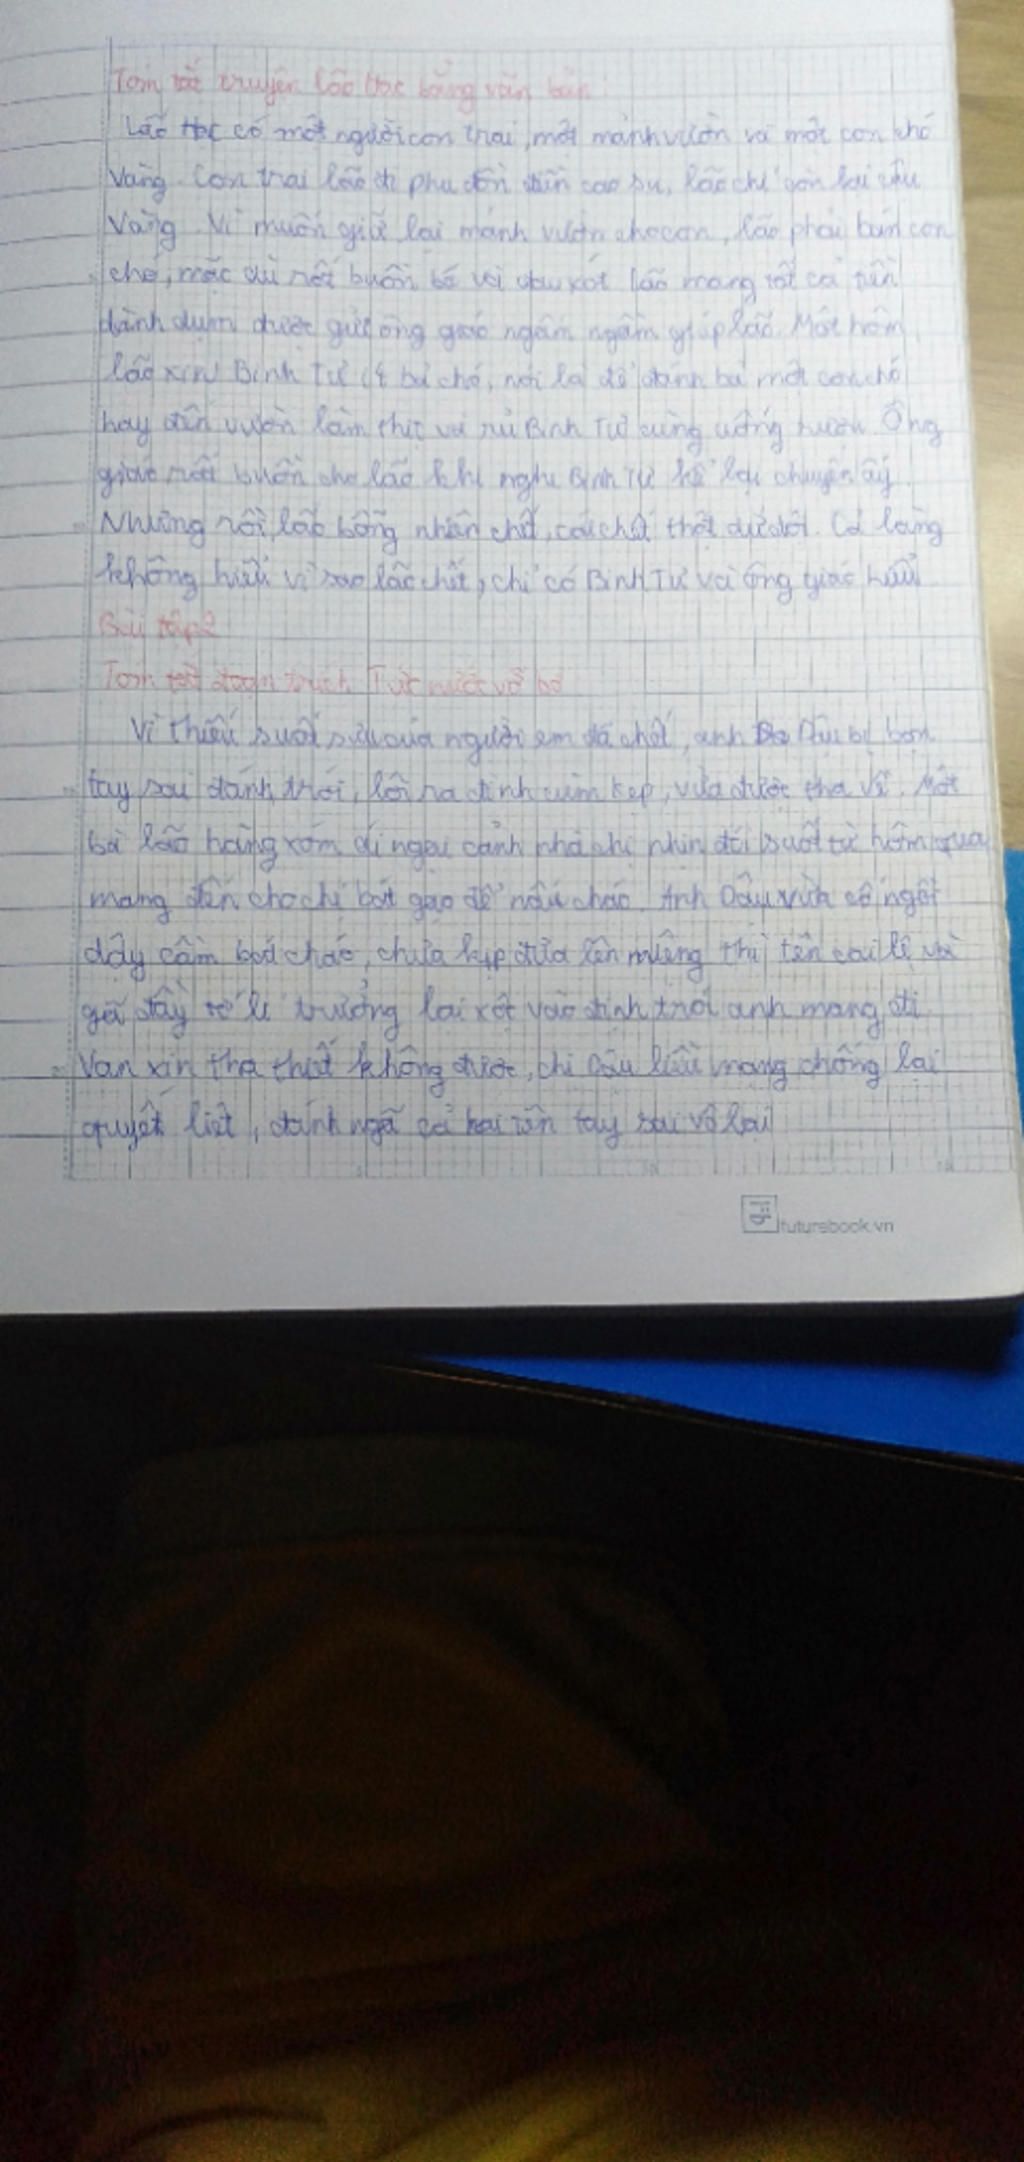 Tóm tắt truyện Lão Hạc bằng văn bản:
Lão Hạc có một người con trai, một mảnh vườn và một con chó
Vàng. Con trai lão đi phu đồn điền cao su, lão chỉ còn lại cậu
Vàng. Vì muốn giữ lại mảnh vườn cho con, lão phải bán con
chó, mặc dù rất buồn bã và đau xót. Lão mang tất cả tiền
dành dụm được gửi ông giáo ngấm ngầm giúp lão. Một hôm
lão xin Binh Tư bả chó, nói là để đánh bả một con chó
hay đến vườn làm thịt và rủ Binh Tư cùng uống rượu. Ông
giáo rất buồn cho lão khi nghe Binh Tư kể lại chuyện ấy.
Nhưng rồi lão bỗng nhiên chết, cái chết thật dữ dội. Cả làng
không hiểu vì sao lão chết, chỉ có Binh Tư và ông giáo hiểu
Bài tập 2
Tóm tắt đoạn trích Tức nước vỡ bờ
Vì thiếu suất sưu của người em đã chết, anh Dậu bị bọn
tay sai đánh trói, lôi ra đình cùm kẹp, vừa được tha về. Một
bà lão hàng xóm ái ngại cảnh nhà chị nhịn đói suốt từ hôm qua
mang đến cho chị bát gạo để nấu cháo. Anh Dậu vừa cố ngồi
dậy cầm bát cháo, chưa kịp đưa lên miệng thì tên cai lệ và
gã đầy tớ lí trưởng lại xột vào định trói anh mang đi.
Van xin tha thiết không được, chị Dậu liều mạng chống lại
quyết liệt, đánh ngã cả hai tên tay sai vô lại
futurebook.vn